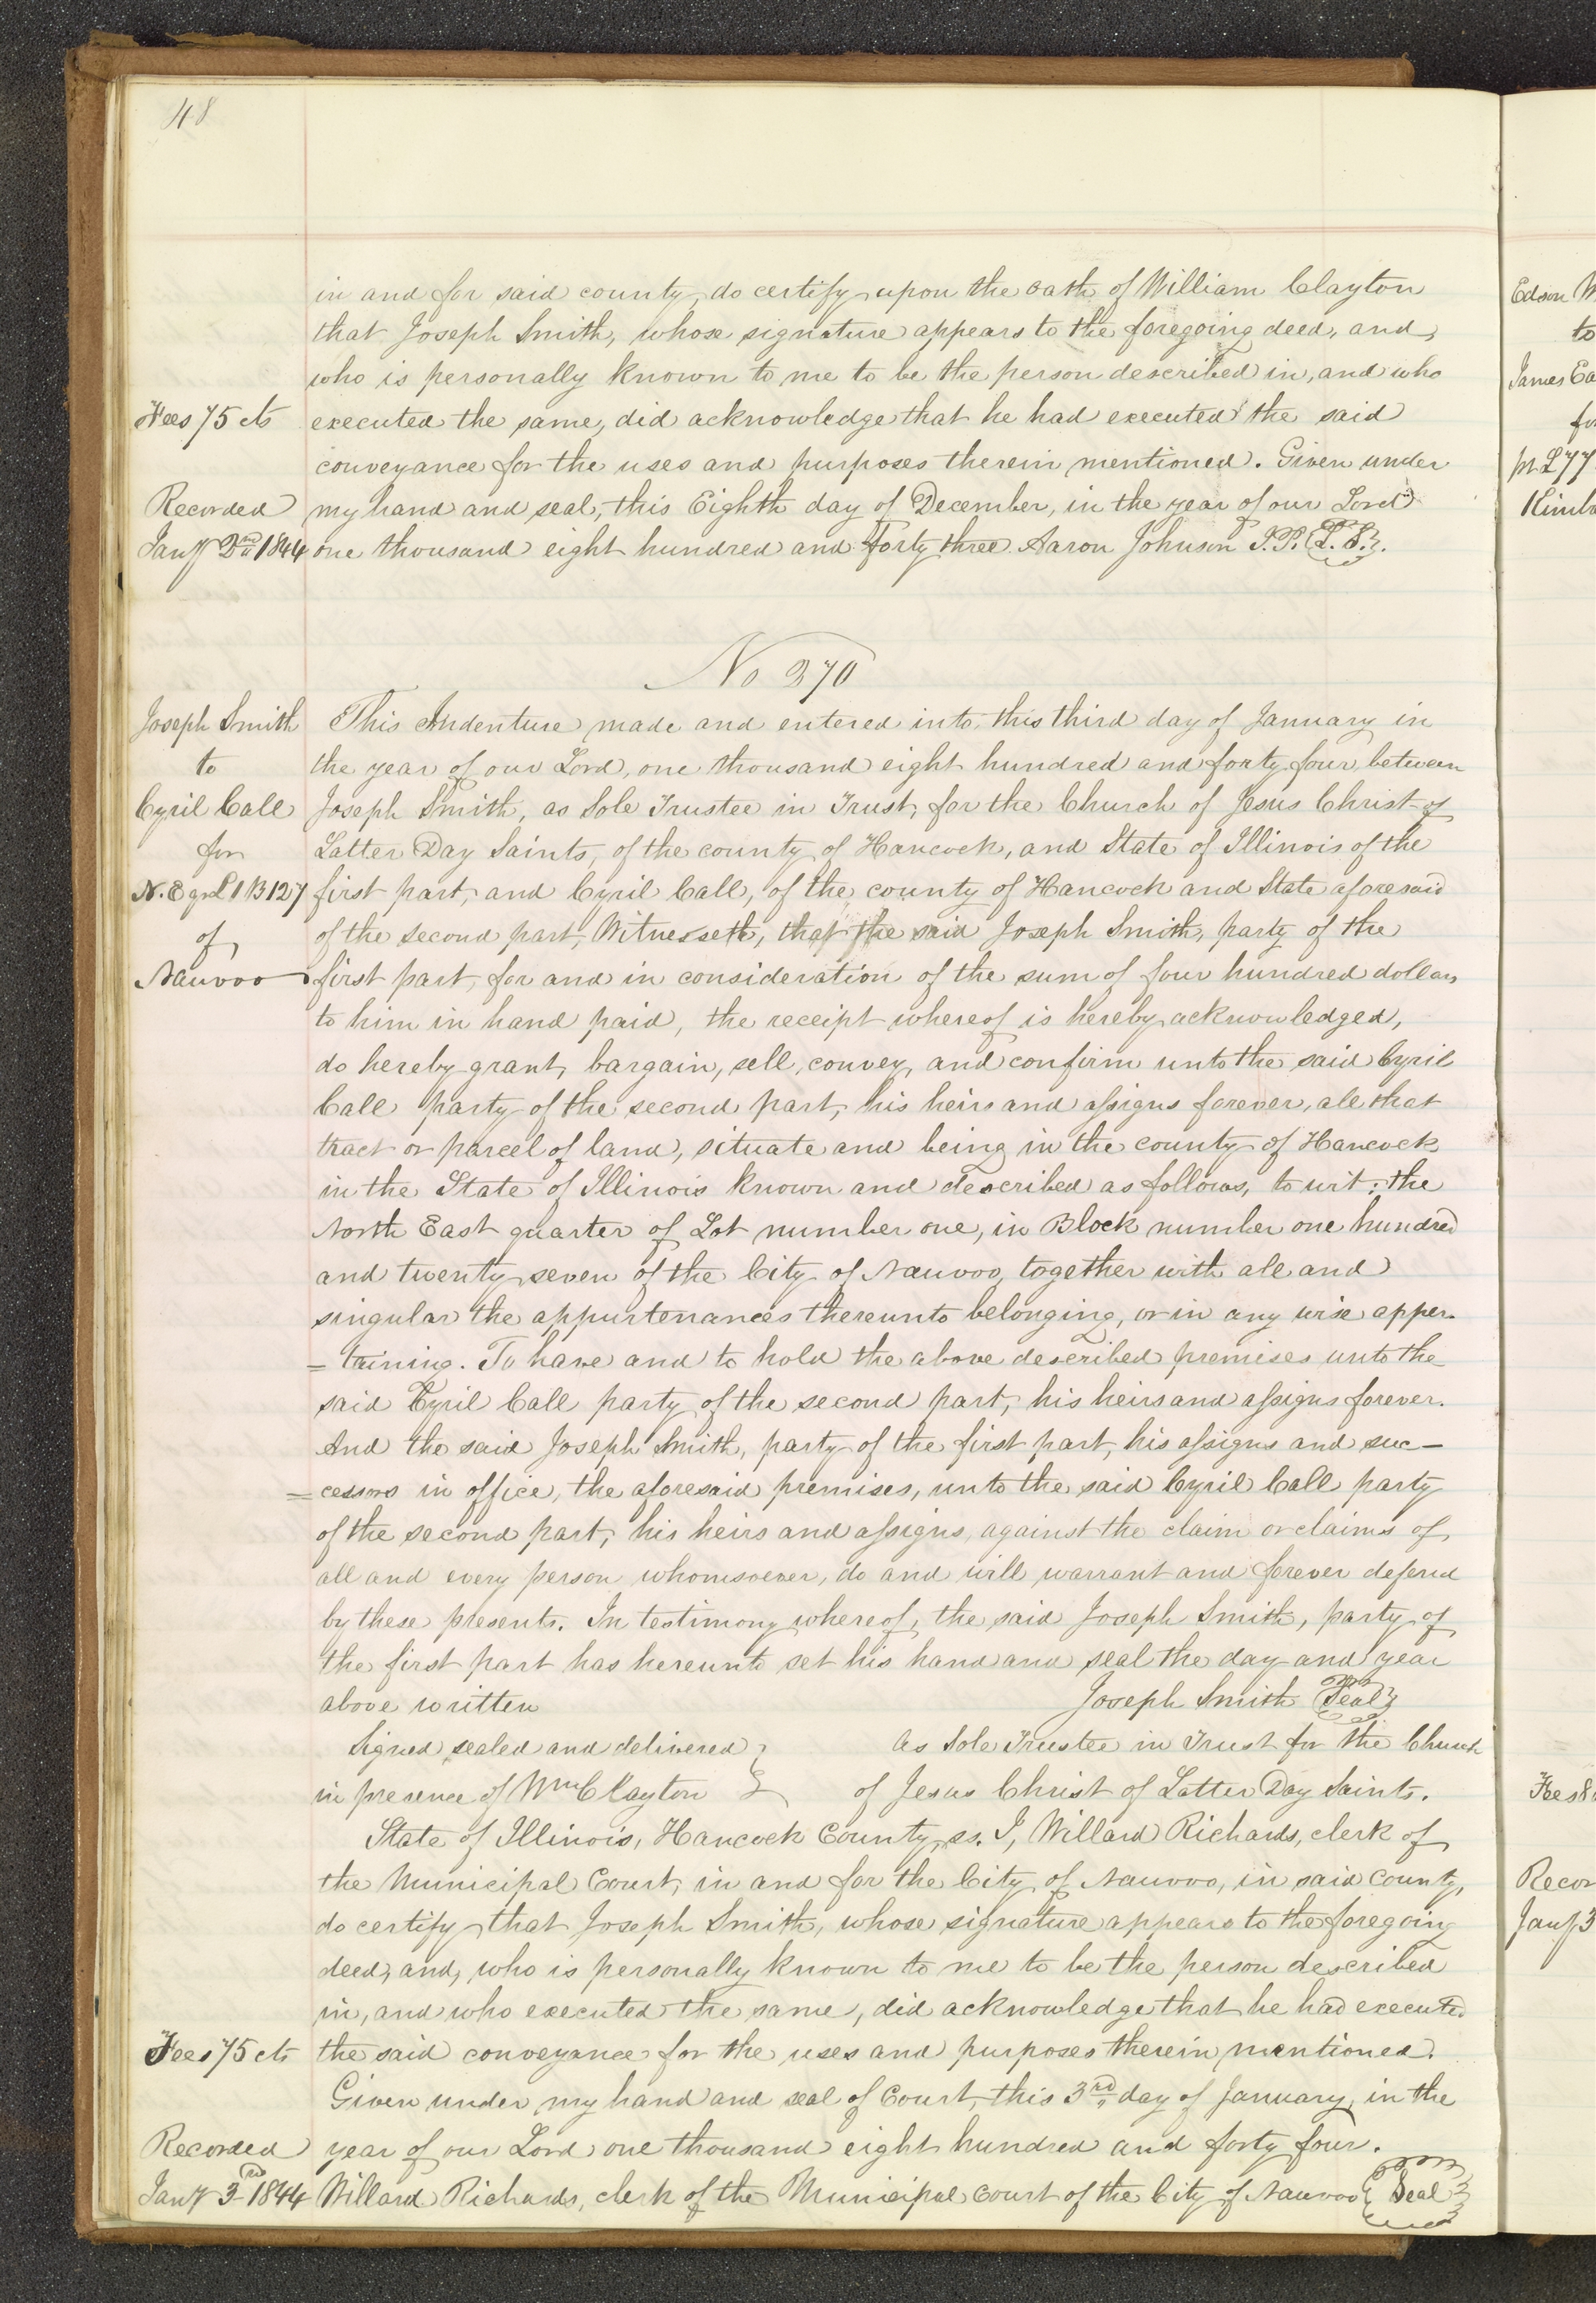 48
in and for said county, do certify upon the oath of William Clayton
that Joseph Smith, whose signature appears to the foregoing deed, and,
who is personally known to me to be the person described in, and who
Fees 75 cts executed the same, did acknowledge that he had executed the said
conveyance for the uses and purposes therein mentioned. Given under
Recorded my hand and seal, this Eighth day of December, in the year of our Lord
Jany 2nd 1844 one thousand eight hundred and forty three Aaron Johnson J.P. {L.S.}.
No 370
Joseph Smith This Indenture made and entered into, this third day of January in
to the year of our Lord, one thousand eight hundred and forty four, between
Cyril Call Joseph Smith, as Sole Trustee in Trust, for the Church of Jesus Christ of
for Latter Day Saints, of the county of Hancock, and State of Illinois of the
N.E qr L 1 B 127 first part, and Cyril Call, of the county of Hancock and State aforesaid
of of the second part, Witnesseth, that the said Joseph Smith, party of the
Nauvoo first part, for and in consideration of the sum of four hundred dollars
to him in hand paid, the receipt whereof is hereby acknowledged,
do hereby grant, bargain, sell, convey, and confirm unto the said Cyril
Call party of the second part, his heirs and assigns forever, all that
tract or parcel of land, situate and being in the county of Hancock
in the State of Illinois known and described as follows, to wit: the
North East quarter of Lot number one, in Block number one hundred
and twenty seven of the City of Nauvoo, together with all and
singular the appurtenances thereunto belonging, or in any wise apper-
=taining. To have and to hold the above described premises unto the
said Cyril Call party of the second part, his heirs and assigns forever.
And the said Joseph Smith, party of the first part, his assigns and suc-
=cessors in office, the aforesaid premises, unto the said Cyril Call party
of the second part, his heirs and assigns, against the claim or claims of
all and every person whomsoever, do and will warrant and forever defend
by these presents. In testimony whereof, the said Joseph Smith, party of
the first part has hereunto set his hand and seal the day and year
above written Joseph Smith {Seal}
Signed sealed and delivered } As Sole Trustee in Trust for the Church
in presence of Wm Clayton } of Jesus Christ of Latter Day Saints.
State of Illinois, Hancock County, ss. I, Willard Richards, clerk of
the Municipal Court, in and for the City of Nauvoo, in said County,
do certify that Joseph Smith, whose signature appears to the foregoing
deed, and, who is personally known to me to be the person described
in, and who executed the same, did acknowledge that he had executed
Fees 75 cts the said conveyance for the uses and purposes therein mentioned.
Given under my hand and seal of Court, this 3rd day of January, in the
Recorded year of our Lord one thousand eight hundred and forty four.
Jany 3rd 1844 Willard Richards, clerk of the Municipal Court of the City of Nauvoo {Seal}
Edson
to
James
Recor
Jany 3